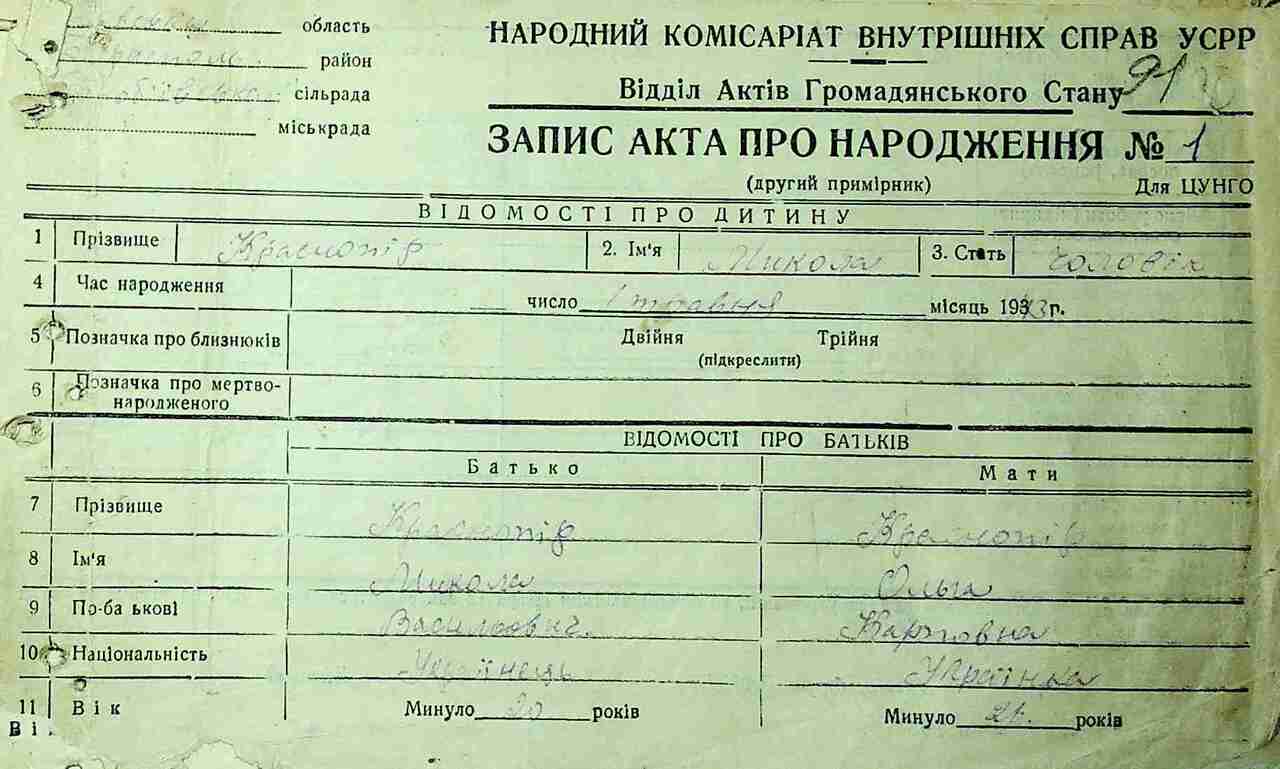 область
район
сільрада
міськрада
НАРОДНИЙ КОМІСАРІАТ ВНУТРІШНІХ СПРАВ УСРР
Відділ Актів Громадянського Стану 91
ЗАПИС АКТА ПРО НАРОДЖЕННЯ № 1
(другий примірник) Для ЦУНГО
ВІДОМОСТІ ПРО ДИТИНУ
1 Прізвище Краснопір 2. Ім'я Микола 3. Стать Чоловік
4 Час народження число 1 травня місяць 193 р.
5 Позначка про близнюків Двійня Трійня
(підкреслити)
6 Позначка про мертво-
народженого
ВІДОМОСТІ ПРО БАТЬКІВ
Батько Мати
7 Прізвище Краснопір Краснопір
8 Ім'я Микола Ольга
9 По-ба ькові Васильович. Карповна
10 Національність Українець Українка
11 Вік Минуло 20 років Минуло 21 років
Ві